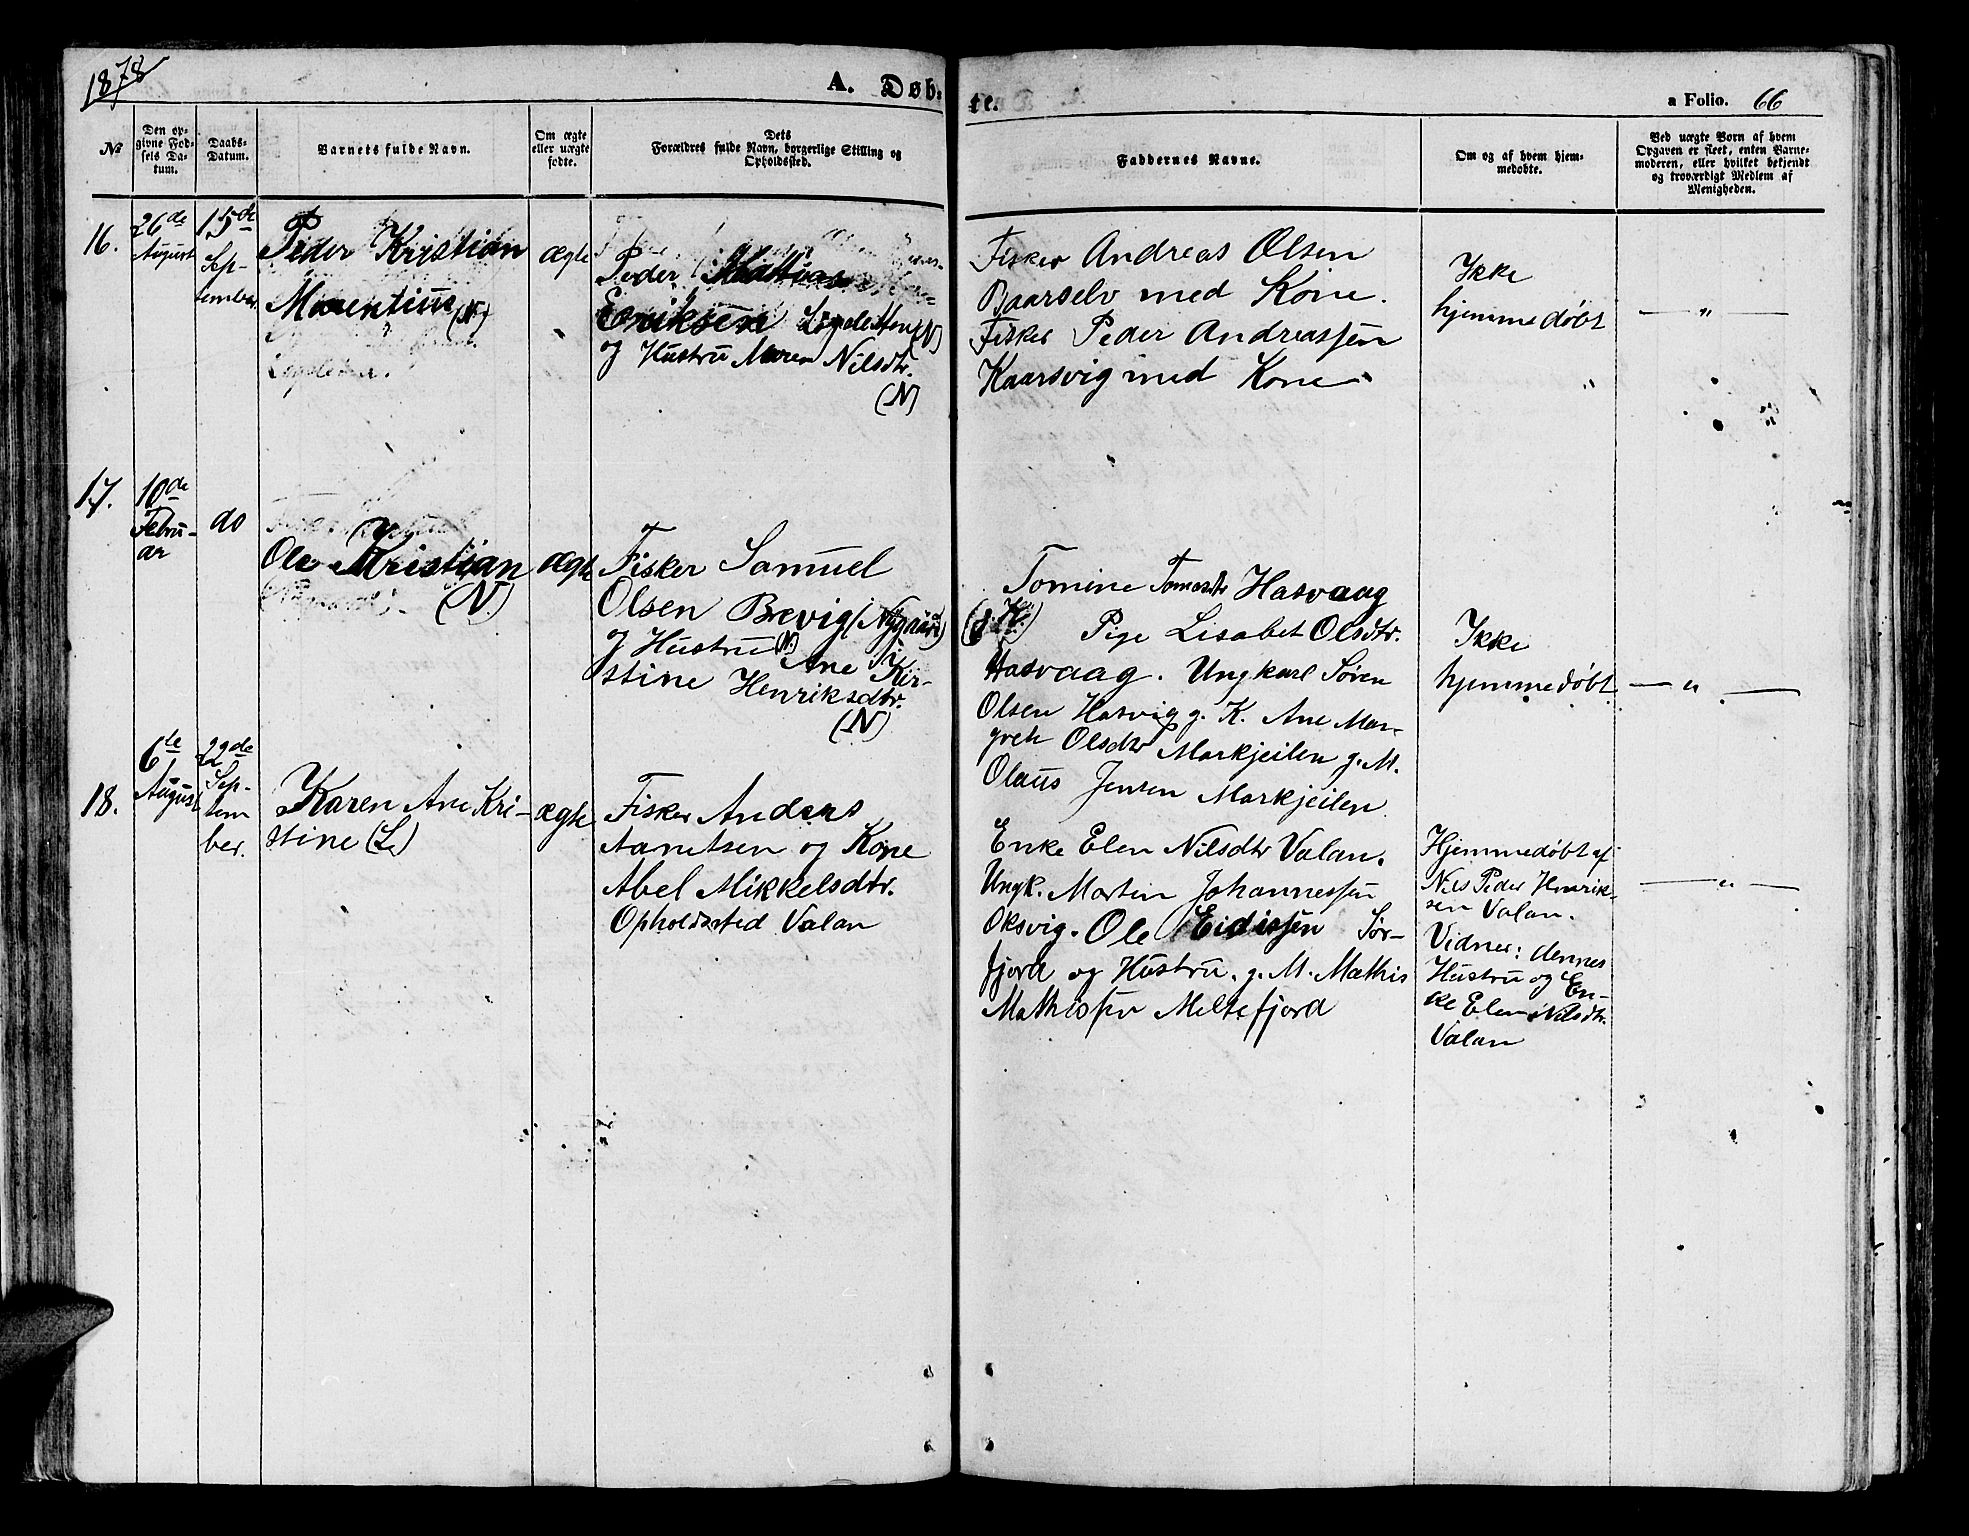 1878
A. Døb-
te.
a Folio. 66
№
Den op-
givne Fød-
sels Da-
tum.
Daabs-
Datum.
Barnets fulde Navn.
Om ægte
eller uægte
fødte.
Dets
Forældres fulde Navn, borgerlige Stilling og
Opholdssted.
Faddernes Navne.
Om og af hvem hjem-
medøbte.
Ved uægte Børn af hvem
Opgaven er skeet, enten Barne-
moderen, eller hvilket bekjendt
og troværdigt Medlem af
Menigheden.
16.
26de
August
15de
Sep-
tember
Peder Kristian
Morentius (N)
ægte
Peder Mathias
Eriksen (N)
og Hustru Maren Nilsdtr.
(N)
Fisker Andreas Olsen
Baarselv med Kone.
Fisker Peder Andreassen
Kaarsvig med Kone
Ikke
hjemmedøbt
— " —
17.
10de
Febru-
ar
do
Ole Kristian
(N)
ægte
Fisker Samuel
Olsen Brevig (Nygaard)
og Hustru (N) Ane Kir-
stine Henriksdtr.
(N)
Tomine Tomasdtr Hasvaag
(g. K.) Pige Lisabet Olsdtr.
Hasvaag. Ungkarl Søren
Olsen Hasvig g. K. Ane Mar-
grete Olsdtr Markjeilen g. M.
Olaus Jensen Markjeilen
Ikke
hjemmedøbt
— " —
18.
6te
August
22de
Sep-
tem
ber.
Karen Ane Kri-
stine (L)
ægte
Fisker Anders
Aanetsen og Kone
Abel Mikkelsdtr.
Opholdssted Valan
Enke Elen Nilsdtr Valan.
Ungk. Martin Johannessen
Oksvig. Ole Eidissen Sør-
fjord og Hustru. g. M. Mathis
Mathissen Meltefjord
Hjemmedøbt af
Nils Peder Henrik-
sen Valan.
Vidner: dennes
Hustru og En-
ke Elen Nilsdtr.
Valan
— " —